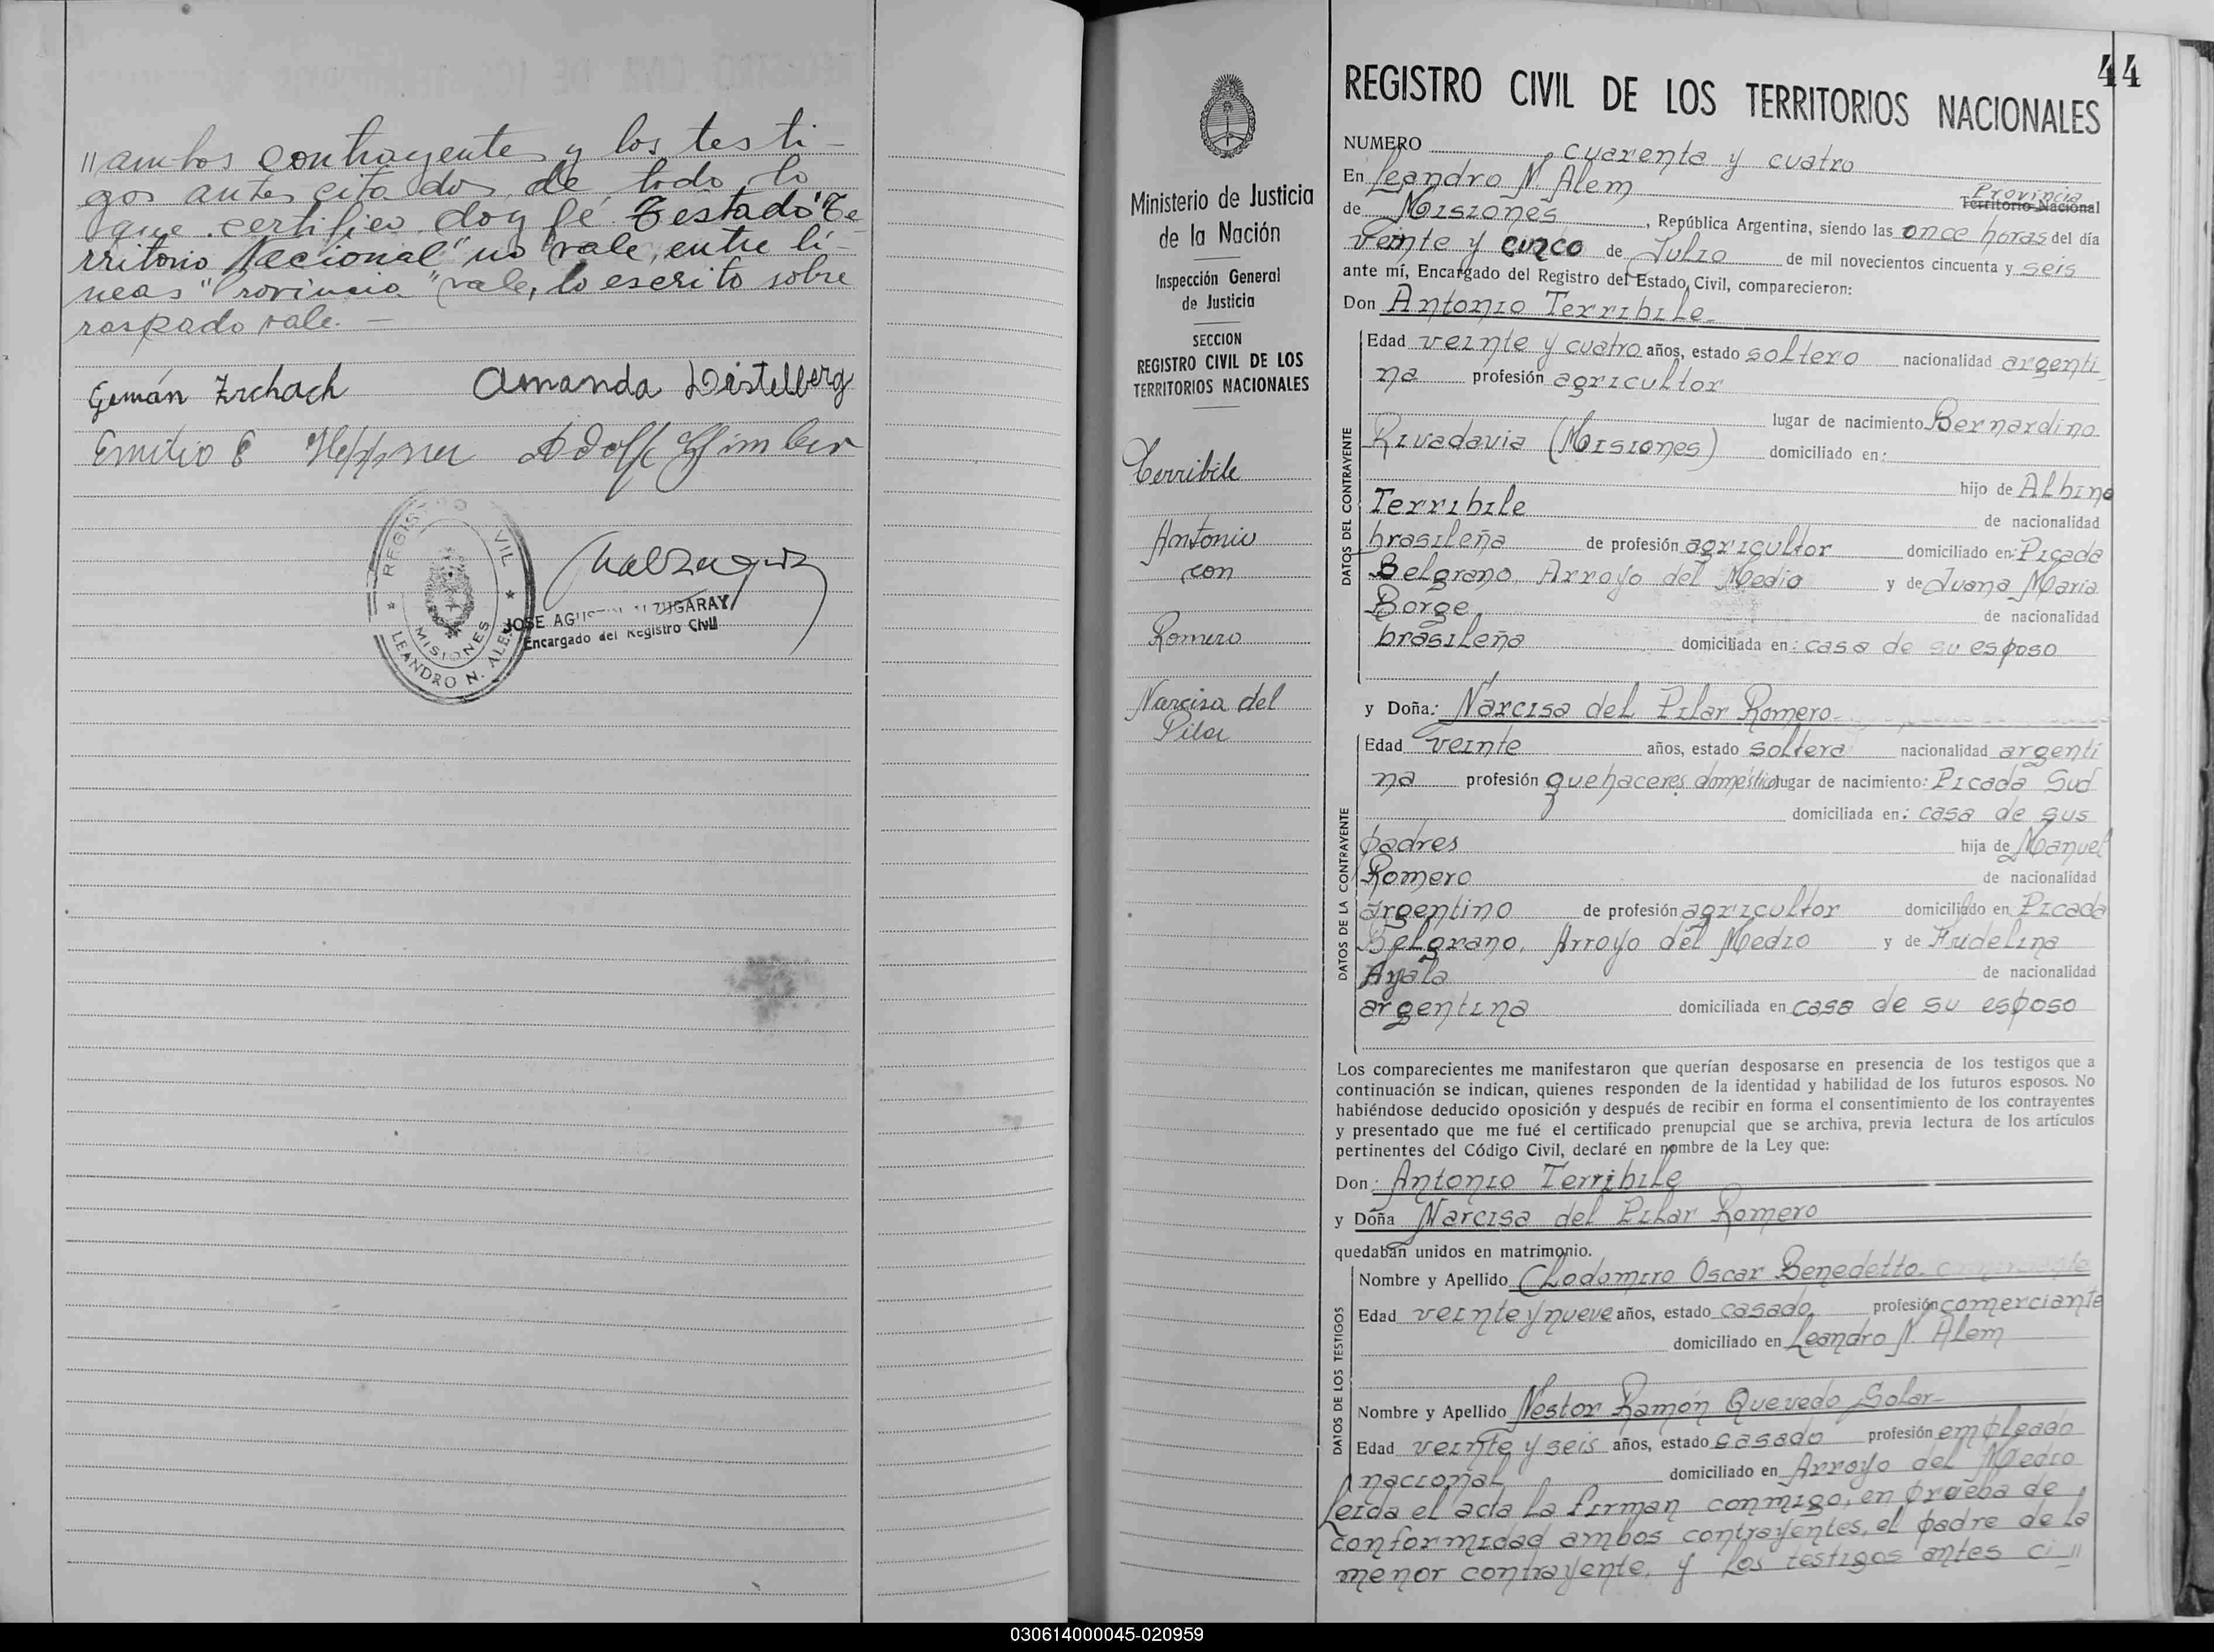 "ambos contrayentes y los testi-
gos antes citados de todo lo
que certifico doy fé Testado "Te-
rritorio Nacional" no vale, entre lí-
neas "Provincia" vale, lo escrito sobre
raspado vale. —
Germán Zrchach Amanda Distelberg
Emilio E Heppner Adolf
REGISTRO CIVIL
MISIONES
LEANDRO N. ALEM
JOSE AGUSTIN ALZUGARAY
Encargado del Registro Civil
44
Ministerio de Justicia
de la Nación
Inspección General
de Justicia
SECCION
REGISTRO CIVIL DE LOS
TERRITORIOS NACIONALES
Terribile
Antonio
con
Romero
Narcisa del
Pilar
REGISTRO CIVIL DE LOS TERRITORIOS NACIONALES
NUMERO cuarenta y cuatro
En Leandro N. Alem Provincia
Territorio Nacional
de Misiones, República Argentina, siendo las once horas del día
veinte y cinco de Julio de mil novecientos cincuenta y seis
ante mí, Encargado del Registro del Estado Civil, comparecieron:
Don Antonio Terribile
DATOS DEL CONTRAYENTE
Edad veinte y cuatro años, estado soltero nacionalidad argenti
na profesión agricultor
lugar de nacimiento Bernardino
Rivadavia (Misiones) domiciliado en:
hijo de Albino
Terribile de nacionalidad
brasileña de profesión agricultor domiciliado en: Picada
Belgrano, Arroyo del Medio y de Juana Maria
Borge de nacionalidad
brasileña domiciliada en: casa de su esposo
y Doña: Narcisa del Pilar Romero
DATOS DE LA CONTRAYENTE
Edad veinte años, estado soltera nacionalidad argenti
na profesión quehaceres domésticos lugar de nacimiento: Picada Sud
domiciliada en: casa de sus
padres hija de Manuel
Romero de nacionalidad
argentino de profesión agricultor domiciliado en Picada
Belgrano, Arroyo del Medio y de Fridelina
Ayala de nacionalidad
argentina domiciliada en casa de su esposo
Los comparecientes me manifestaron que querían desposarse en presencia de los testigos que a
continuación se indican, quienes responden de la identidad y habilidad de los futuros esposos. No
habiéndose deducido oposición y después de recibir en forma el consentimiento de los contrayentes
y presentado que me fué el certificado prenupcial que se archiva, previa lectura de los artículos
pertinentes del Código Civil, declaré en nombre de la Ley que:
Don: Antonio Terribile
y Doña Narcisa del Pilar Romero
quedaban unidos en matrimonio.
DATOS DE LOS TESTIGOS
Nombre y Apellido Clodomiro Oscar Benedetto.
Edad veinte y nueve años, estado casado, profesión comerciante
domiciliado en Leandro N. Alem
Nombre y Apellido Nestor Ramón Quevedo Solar
Edad veinte y seis años, estado casado profesión empleado
nacional domiciliado en Arroyo del Medio
Leida el acta la firman conmigo, en prueba de
conformidad ambos contrayentes, el padre de la
menor contrayente, y los testigos antes ci"
030614000045-020959